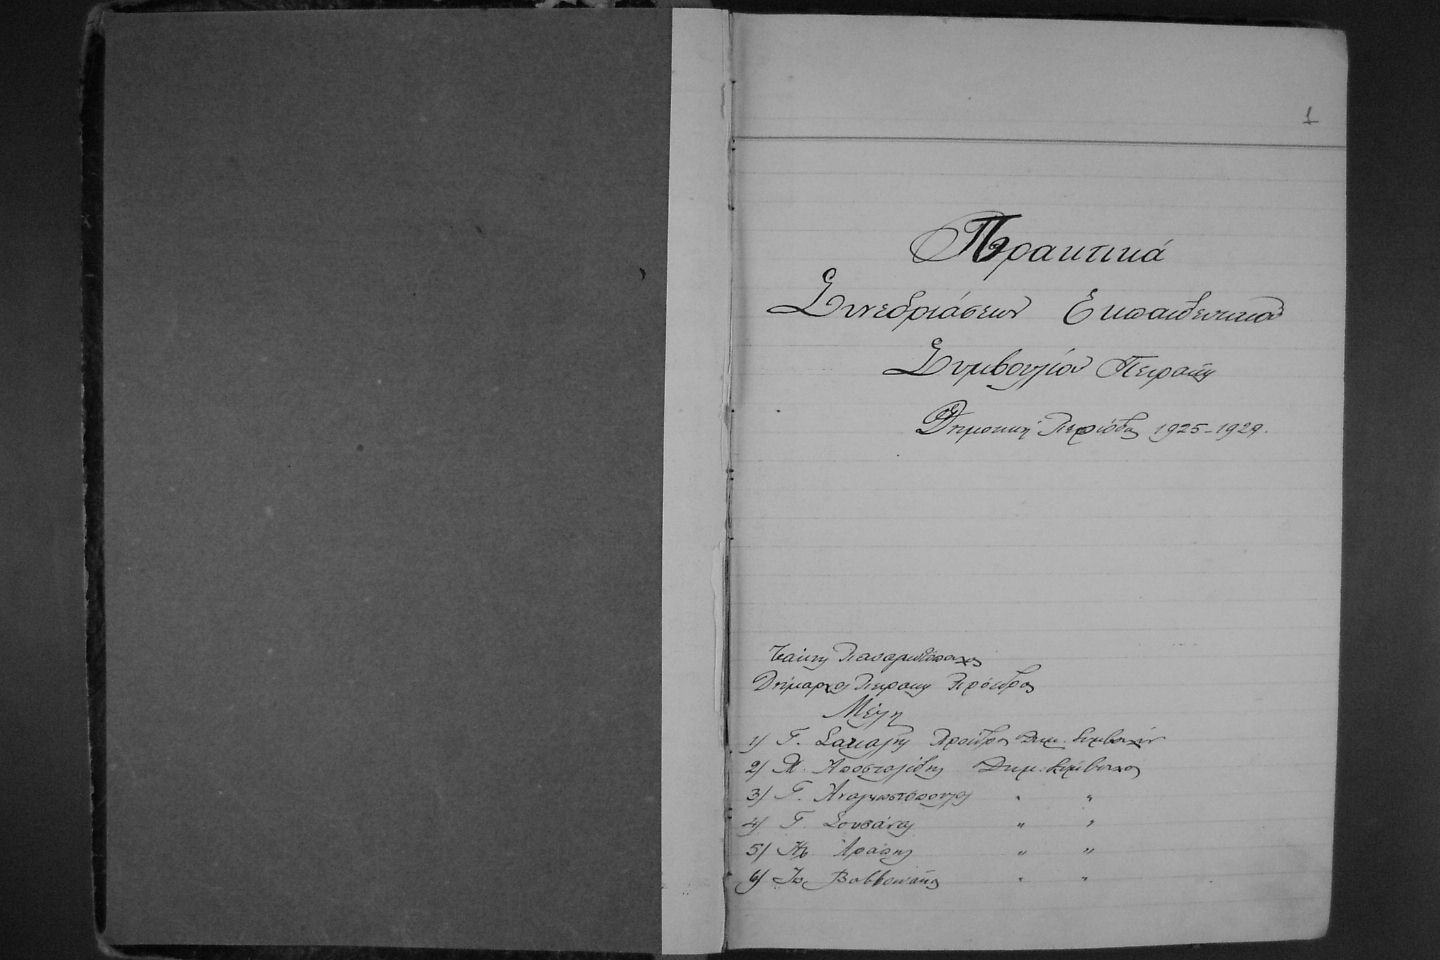 1
Πρακτικά
Συνεδριάσεων Εκπαιδευτικού
Συμβουλίου Πειραιώς
Δημοτική Περίοδος 1925-1929.
Τάκης Παναγιωτόπουλος
Δήμαρχος Πειραιώς Πρόεδρος
Μέλη
1) Γ. Πρόεδρος Δημ. Συμβουλίου
2) Μ. Αποστολίδης Δημ. Σύμβουλος
3) Γ. Αναγνωστόπουλος " "
4) Γ. " "
5) " "
6) Ιω. " "